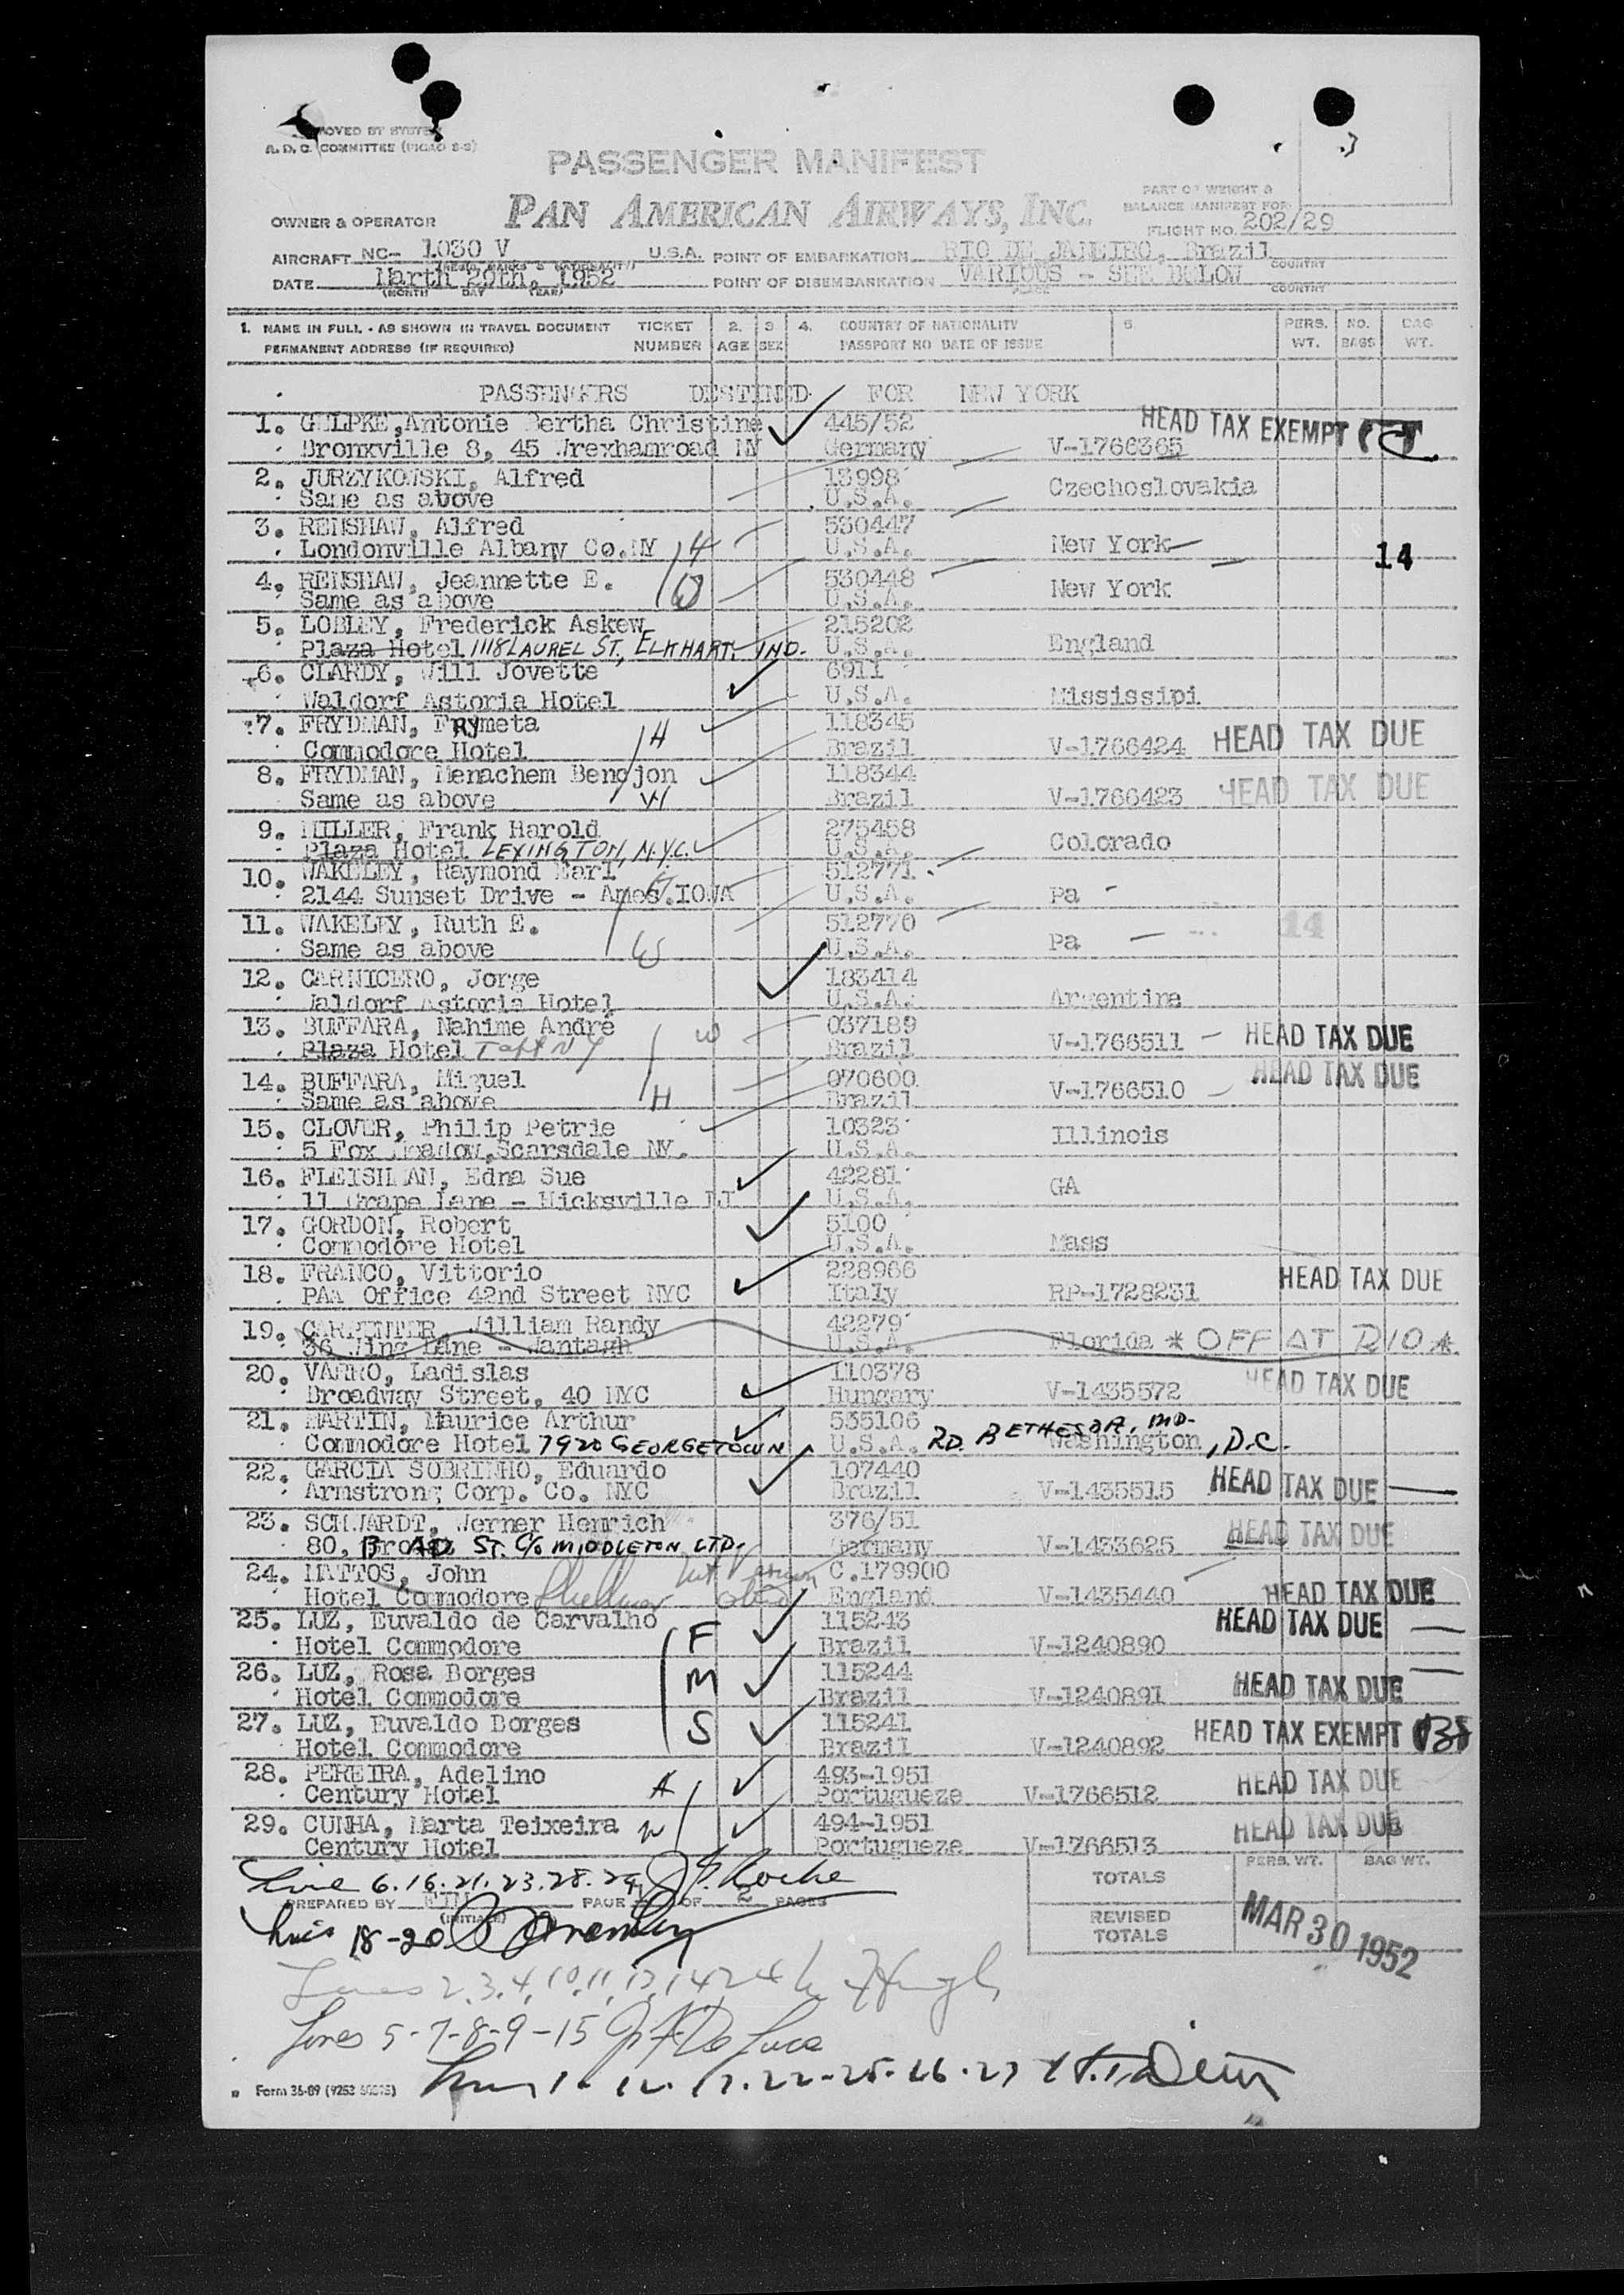 A. D. C. COMMITTEE
PASSENGER MANIFEST
PAN AMERICAN AIRWAYS, INC.
PART OF WEIGHT &
BALANCE MANIFEST FOR
FLIGHT NO. 202/29
OWNER & OPERATOR
AIRCRAFT NC- 1030 V U.S.A. POINT OF EMBARKATION RIO DE JANEIRO, Brazil COUNTRY
DATE March 29th, 1952 POINT OF DISEMBARKATION VARIOUS - SEE BELOW
(MONTH) DAY (YEAR) PLACE COUNTRY
1. NAME IN FULL - AS SHOWN IN TRAVEL DOCUMENT TICKET 2. 3 4. COUNTRY OF NATIONALITY 5. PERS. NO. BAG
PERMANENT ADDRESS (IF REQUIRED) NUMBER AGE SEX PASSPORT NO DATE OF ISSUE WT. BAGS WT.
PASSENGERS DESTINED FOR NEW YORK
1. GELPKE, Antonie Bertha Christine 445/52 HEAD TAX EXEMPT
Bronxville 8, 45 Wrexhamroad NY Germany V-1766365
2. JURZYKOWSKI, Alfred 13998
Same as above U.S.A. Czechoslovakia
3. RENSHAW, Alfred 530447
Londonville Albany Co.NY H U.S.A. New York 14
4. RENSHAW, Jeannette E. 530448
Same as above W U.S.A. New York
5. LOBLEY, Frederick Askew 215202
Plaza Hotel 1118 LAUREL ST, ELKHART, IND. U.S.A. England
6. CLARDY, Will Jovette 6911
Waldorf Astoria Hotel U.S.A. Mississipi
7. FRYDMAN, FRymeta 118345
Commodore Hotel H Brazil V-1766424 HEAD TAX DUE
8. FRYDMAN, Menachem Bencjon 118344
Same as above W Brazil V-1766423 HEAD TAX DUE
9. MILLER, Frank Harold 275458
Plaza Hotel LEXINGTON, N.Y.C. U.S.A. Colorado
10. WAKELEY, Raymond Earl 512771
2144 Sunset Drive - Ames.IOWA U.S.A. Pa
11. WAKELEY, Ruth E. 512770 14
Same as above W U.S.A. Pa
12. CARNICERO, Jorge 183414
Waldorf Astoria Hotel U.S.A. Argentina
13. BUFFARA, Nahime André W 037189
Plaza Hotel Taft NY Brazil V-1766511 HEAD TAX DUE
14. BUFFARA, Miguel 070600
Same as above H Brazil V-1766510 HEAD TAX DUE
15. CLOVER, Philip Petrie 10323
5 Fox Meadow, Scarsdale NY. U.S.A. Illinois
16. FLEISHMAN, Edna Sue 42281
11 Grape Lane - Hicksville LI U.S.A. GA
17. GORDON, Robert 5100
Commodore Hotel U.S.A. Mass
18. FRANCO, Vittorio 228966
PAA Office 42nd Street NYC Italy RP-1728231 HEAD TAX DUE
19. CARPENTER, William Randy 42279
36 Wing Lane - Wantagh U.S.A. Florida * OFF AT RIO *
20. VARRO, Ladislas 110378
Broadway Street, 40 NYC Hungary V-1435572 HEAD TAX DUE
21. MARTIN, Maurice Arthur 535106
Commodore Hotel 7920 GEORGETOWN U.S.A. RD. BETHESDA, MD. Washington, D.C.
22. GARCIA SOBRINHO, Eduardo 107440
Armstrong Corp. Co. NYC Brazil V-1435515 HEAD TAX DUE
23. SCHWARDT, Werner Henrich 376/51
80, BROAD ST. C/o MIDDLETON LTD. Germany V-1433625 HEAD TAX DUE
24. MATTOS, John C.179900
Hotel Commodore England V-1435440 HEAD TAX DUE
25. LUZ, Euvaldo de Carvalho F 115243 HEAD TAX DUE
Hotel Commodore Brazil V-1240890
26. LUZ, Rosa Borges M 115244
Hotel Commodore Brazil V-1240891 HEAD TAX DUE
27. LUZ, Euvaldo Borges S 115241
Hotel Commodore Brazil V-1240892 HEAD TAX EXEMPT
28. PEREIRA, Adelino H 493-1951
Century Hotel Portugueze V-1766512 HEAD TAX DUE
29. CUNHA, Marta Teixeira W 494-1951
Century Hotel Portugueze V-1766513 HEAD TAX DUE
TOTALS PERS. WT. BAG WT.
Line 6.16.21.23.28.29
PREPARED BY PAGE OF 2 PAGES
(INITIALS)
REVISED
TOTALS
MAR 30 1952
18-20
Lines 2,3,4,10,11,13,14,24
Lines 5-7-8-9-15 J F De Luca
1-12-17-22-25-26-27
Form 36-89